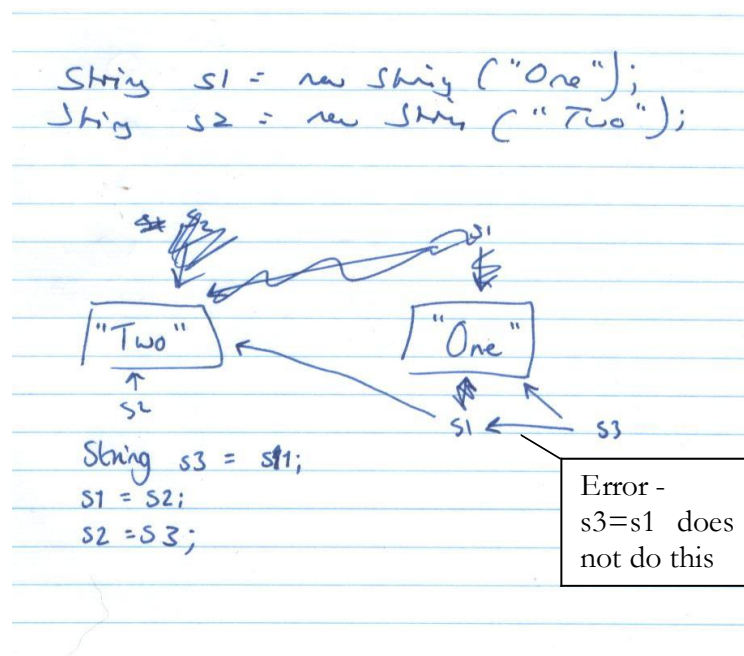 String s1 = new String ("One");
String s2 = new String ("Two");
s2 s1
"Two" "One"
s2
s1 s3
String s3 = s1;
s1 = s2;
s2 = s3;
Error -
s3=s1 does
not do this